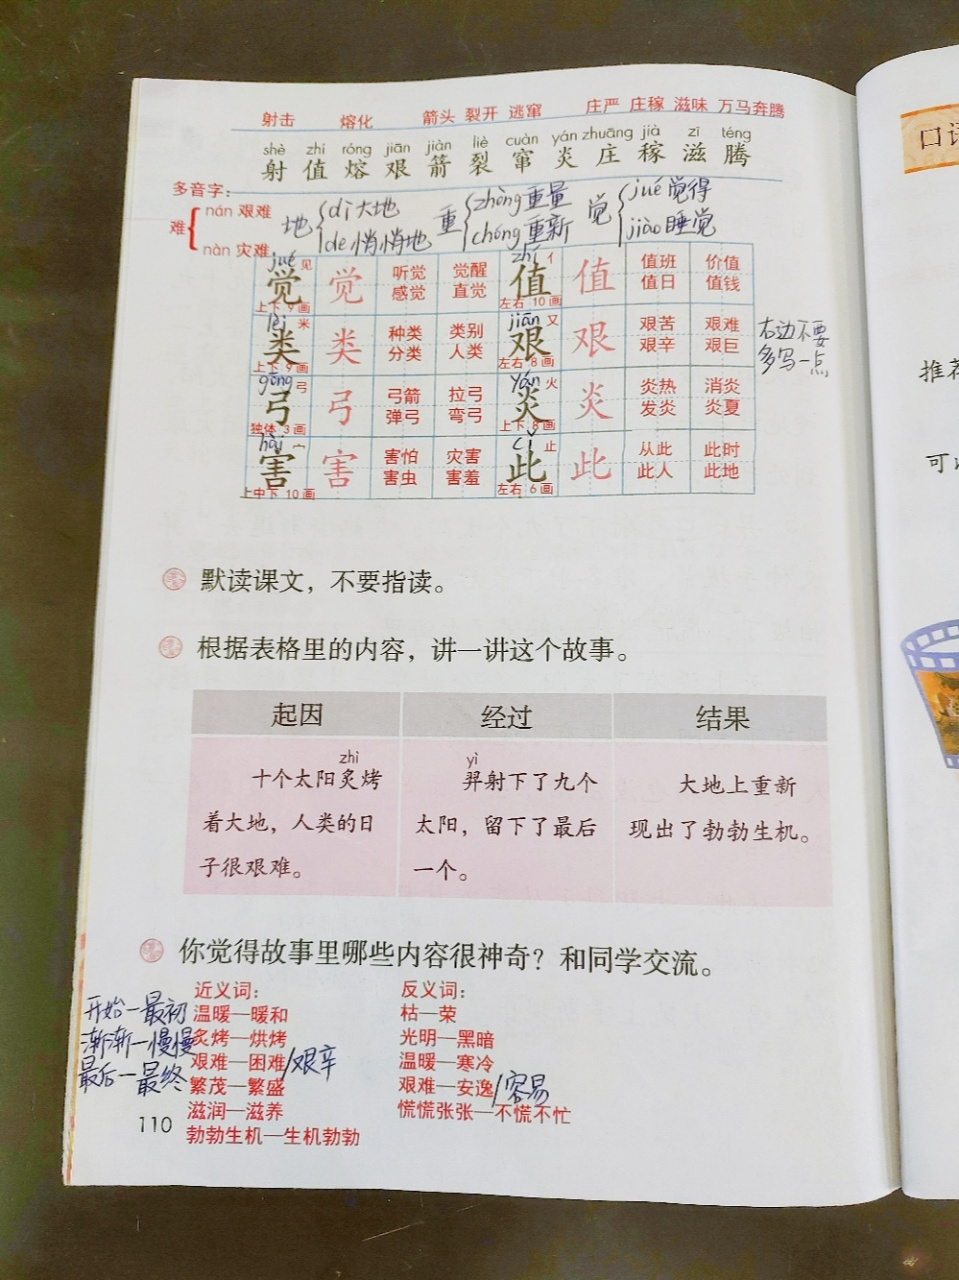 射击 熔化 箭头 裂开 逃窜 庄严 庄稼 滋味 万马奔腾
shè zhí róng jiān jiàn liè cuàn yán zhuāng jià zī téng
射 值 熔 艰 箭 裂 窜 炎 庄 稼 滋 腾
多音字：
难 nán 艰难 nàn 灾难
地 dì 大地 de 悄悄地
重 zhòng 重量 chóng 重新
觉 jué 觉得 jiào 睡觉
jué 见 觉 上下 9画 觉 听觉 觉醒 感觉 直觉
zhí 亻 值 左右 10画 值 值班 价值 值日 值钱
lèi 米 类 上下 9画 类 种类 类别 分类 人类
jiān 又 艰 左右 8画 艰 艰苦 艰难 艰辛 艰巨
右边不要
多写一点
gōng 弓 弓 独体 3画 弓 弓箭 拉弓 弹弓 弯弓
yán 火 炎 上下 8画 炎 炎热 消炎 发炎 炎夏
hài 宀 害 上中下 10画 害 害怕 灾害 害虫 害羞
cǐ 止 此 左右 6画 此 从此 此时 此人 此地
默读课文，不要指读。
根据表格里的内容，讲一讲这个故事。
起因 经过 结果
zhì
十个太阳炙烤
着大地，人类的日
子很艰难。
yì
羿射下了九个
太阳，留下了最后
一个。
大地上重新
现出了勃勃生机。
你觉得故事里哪些内容很神奇？和同学交流。
近义词：
开始—最初 温暖—暖和
渐渐—慢慢 炙烤—烘烤
最后—最终 艰难—困难/艰辛
繁茂—繁盛
滋润—滋养
勃勃生机—生机勃勃
反义词：
枯—荣
光明—黑暗
温暖—寒冷
艰难—安逸/容易
慌慌张张—不慌不忙
110
推荐